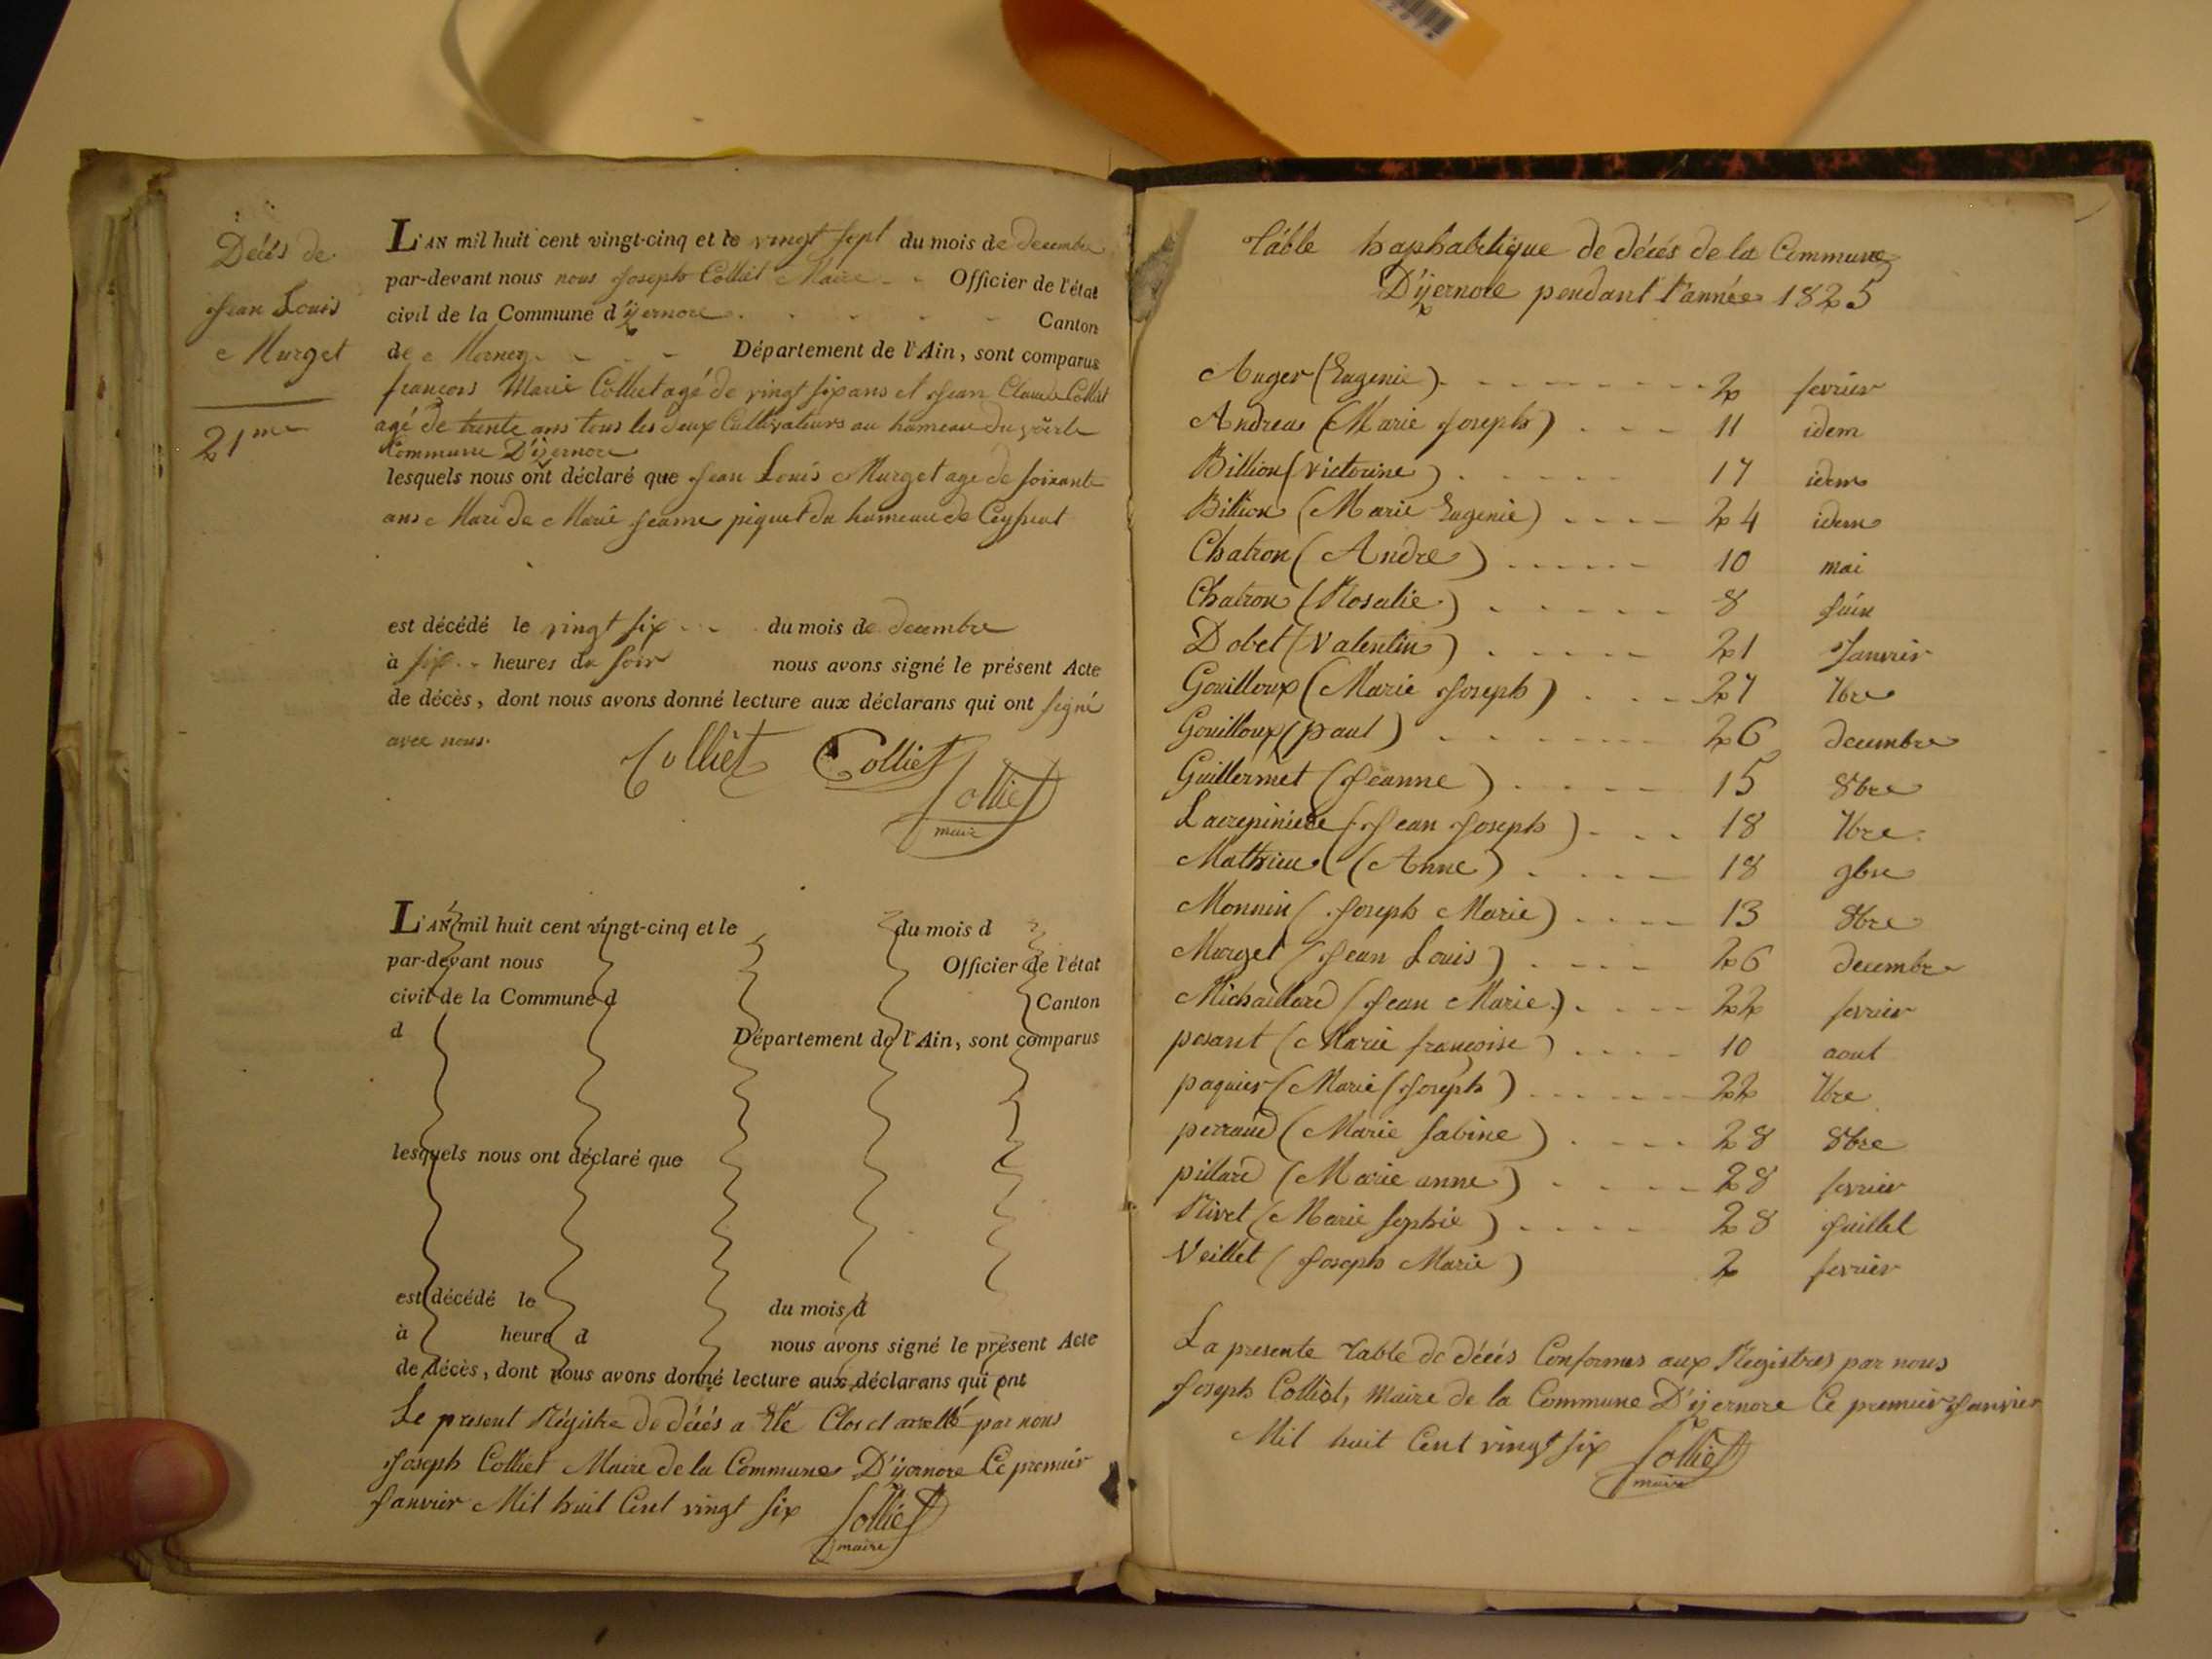 Décés de
Jean Louis
Murget
21me
L'AN mil huit cent vingt-cinq et le vingt sept du mois de decembre
par-devant nous nous Joseph Colliet Maire Officier de l'état
civil de la Commune d'ijzernore Canton
de Département de l'Ain, sont comparus
françois Marie Colliet agé de vingt six ans et Jean Claude Colliet
agé de trente ans tous les deux Cultivateurs au hameau du
Commune D'ijzernore
lesquels nous ont déclaré que Jean Louis Murget agé de soixante
ans Mari de Marie Jeanne piquet du hameau de Ceyssiat
est décédé le vingt six du mois de decembre
à six heures du soir nous avons signé le présent Acte
de décès, dont nous avons donné lecture aux déclarans qui ont signé
avec nous.
Colliet Colliet
Colliet
maire
L'AN mil huit cent vingt-cinq et le du mois d
par-devant nous Officier de l'état
civil de la Commune d Canton
d Département de l'Ain, sont comparus
lesquels nous ont déclaré que
est décédé le du mois d
à heure d nous avons signé le présent Acte
de décès, dont nous avons donné lecture aux déclarans qui ont
Le present Régistre de décés a été Clos et arretté par nous
Joseph Colliet Maire de la Commune D'ijzernore Ce premier
Janvier Mil huit Cent vingt six Colliet
maire
Table haphabetique de décés de la Commune
D'ijzernore pendant l'année 1825
Auger (Eugenie) 2 fevrier
Andrea (Marie Joseph) 11 idem
Billion (victorine) 17 idem
Billion (Marie Eugenie) 24 idem
Chatron (Andre) 10 mai
Chatron (Rosalie) 8 Juin
Dobet (Valentin) 21 Janvier
Gouilloux (Marie Joseph) 27 7bre
Gouilloux (paul) 26 decembre
Guillermet (Jeanne) 15 8bre
Lacrepiniere (Jean Joseph) 18 7bre
Mathieu (Anne) 18 9bre
Monnin (Joseph Marie) 13 8bre
Murget (Jean Louis) 26 decembre
Michaillard (Jean Marie) 22 fevrier
pesant (Marie françoise) 10 aout
paquier (Marie (Joseph) 22 7bre
perraud (Marie sabine) 28 8bre
pillard (Marie anne) 28 fevrier
Rivet (Marie sophie) 28 Juillet
Veillet (Joseph Marie) 2 fevrier
La presente table de décés Conformes aux Régistres par nous
Joseph Colliet, Maire de la Commune D'ijzernore Ce premier Janvier
Mil huit Cent vingt six Colliet
maire